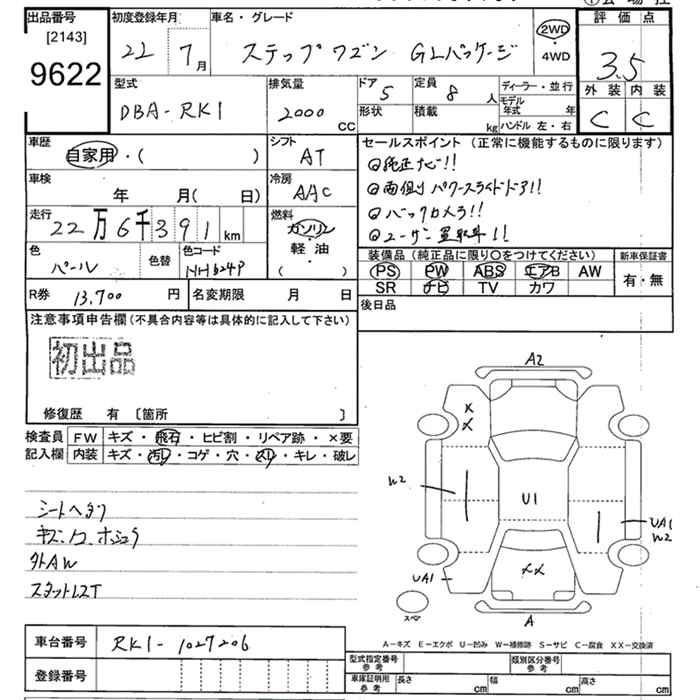 出品番号
[2143]
9622
初度登録年月
22 7月
車名・グレード
ステップワゴン GLパッケージ
2WD
・
4WD
評価点
3.5
外装 内装
C C
型式
DBA-RK1
排気量
2000 CC
ドア 5
形状
定員 8 人
積載 kg
ディーラー・並行
モデル年式 年
ハンドル 左・右
車歴
自家用・( )
シフト
AT
セールスポイント(正常に機能するものに限ります)
◎純正ナビ!!
◎両側パワースライドドア!!
◎バックカメラ!!
◎ユーザー買取車!!
車検
年 月(日)
冷房
AAC
走行
22万6千391km
燃料
ガソリン
・
軽・油
・
( )
色
パール
色替
色コード
NH624P
装備品(純正品に限り○をつけてください)
新車保証書
PS PW ABS エアB AW
SR ナビ TV カワ
有・無
R券 13,700円
名変期限 月 日
後日品
注意事項申告欄(不具合内容等は具体的に記入して下さい)
初出品
修復歴 有 〔箇所 〕
検査員記入欄
FW キズ・飛石・ヒビ割・リペア跡・×要
内装 キズ・汚レ・コゲ・穴・スリ・キレ・破レ
シートヘタリ
キズ、凹、ホシュウ
外AW
A2
X
X
W2
U1
UA1
W2
UA1
XX
スペア
A
A-キズ E-エクボ U-凹み W-補修跡 S-サビ C-腐食 XX-交換済
車台番号
RK1-1027206
登録番号
型式指定番号
参考
類別区分番号
参考
車庫証明用
参考
長さ cm 幅 cm 高さ cm